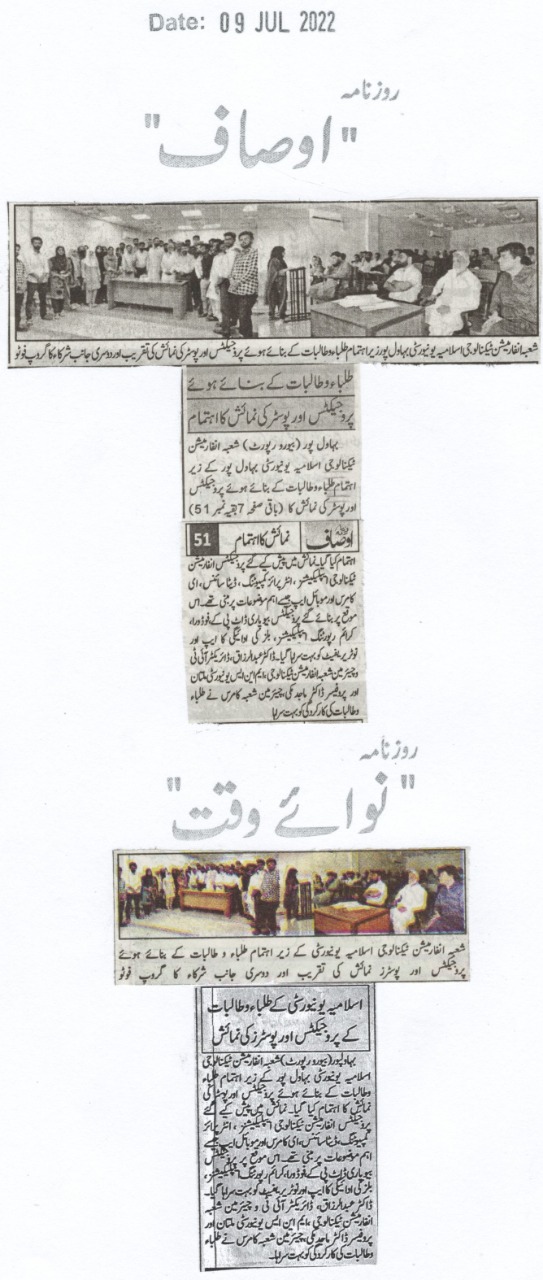 Date: 09 JUL 2022
روزنامہ
"اوصاف"
شعبہ انفارمیشن ٹیکنالوجی اسلامیہ یونیورسٹی بہاول پور زیر اہتمام طلباء وطالبات کے بنائے ہوئے پروجیکٹس اور پوسٹر کی نمائش کی تقریب اور دوسری جانب شرکاء کا گروپ فوٹو
طلباء وطالبات کے بنائے ہوئے
پروجیکٹس اور پوسٹر کی نمائش کا اہتمام
بہاول پور (بیورو رپورٹ) شعبہ انفارمیشن
ٹیکنالوجی اسلامیہ یونیورسٹی بہاول پور کے زیر
اہتمام طلباء وطالبات کے بنائے ہوئے پروجیکٹس
اور پوسٹر کی نمائش کا (باقی صفحہ 7 بقیہ نمبر 51)
اوصاف نمائش کا اہتمام 51
اہتمام کیا گیا۔ نمائش میں پیش کیے گئے پروجیکٹس انفارمیشن
ٹیکنالوجی اپلیکیشنز، انٹرپرائز کمپیوٹنگ، ڈیٹا سائنس، ای
کامرس اور موبائل ایپ جیسے اہم موضوعات پر مبنی تھے۔ اس
موقع پر بنائے گئے پروجیکٹس بیوپاری ڈاٹ پی کے فوڈورا،
کرائم رپورٹنگ اپلیکیشنز، بلز کی ادائیگی کا ایپ اور
ٹورینیفیٹ کو بہت سراہا گیا۔ ڈاکٹر عبدالرزاق، ڈائریکٹر آئی ٹی
و چیئرمین شعبہ انفارمیشن ٹیکنالوجی، ایم این ایس یونیورسٹی ملتان
اور پروفیسر ڈاکٹر ماجد علی، چیئرمین شعبہ کامرس نے طلباء
وطالبات کی کارکردگی کو بہت سراہا
روزنامہ
"نوائے وقت"
شعبہ انفارمیشن ٹیکنالوجی اسلامیہ یونیورسٹی کے زیر اہتمام طلباء و طالبات کے بنائے ہوئے
پروجیکٹس اور پوسٹرز نمائش کی تقریب اور دوسری جانب شرکاء کا گروپ فوٹو
اسلامیہ یونیورسٹی کے طلباء وطالبات
کے پروجیکٹس اور پوسٹرز کی نمائش
بہاولپور (بیورو رپورٹ) شعبہ انفارمیشن ٹیکنالوجی
اسلامیہ یونیورسٹی بہاول پور کے زیر اہتمام طلباء
وطالبات کے بنائے ہوئے پروجیکٹس اور پوسٹر کی
نمائش کا اہتمام کیا گیا۔ نمائش میں پیش کیے گئے
پروجیکٹس انفارمیشن ٹیکنالوجی اپلیکیشنز، انٹرپرائز
کمپیوٹنگ، ڈیٹا سائنس، ای کامرس اور موبائل ایپ جیسے
اہم موضوعات پر مبنی تھے۔ اس موقع پر پروجیکٹس
بیوپاری ڈاٹ پی کے فوڈورا، کرائم رپورٹنگ اپلیکیشنز،
بلز کی ادائیگی کا ایپ اور کو بہت سراہا گیا۔
ڈاکٹر عبدالرزاق، ڈائریکٹر آئی ٹی و چیئرمین شعبہ
انفارمیشن ٹیکنالوجی، ایم این ایس یونیورسٹی ملتان اور
پروفیسر ڈاکٹر ماجد علی، چیئرمین شعبہ کامرس نے طلباء
وطالبات کی کارکردگی کو بہت سراہا۔